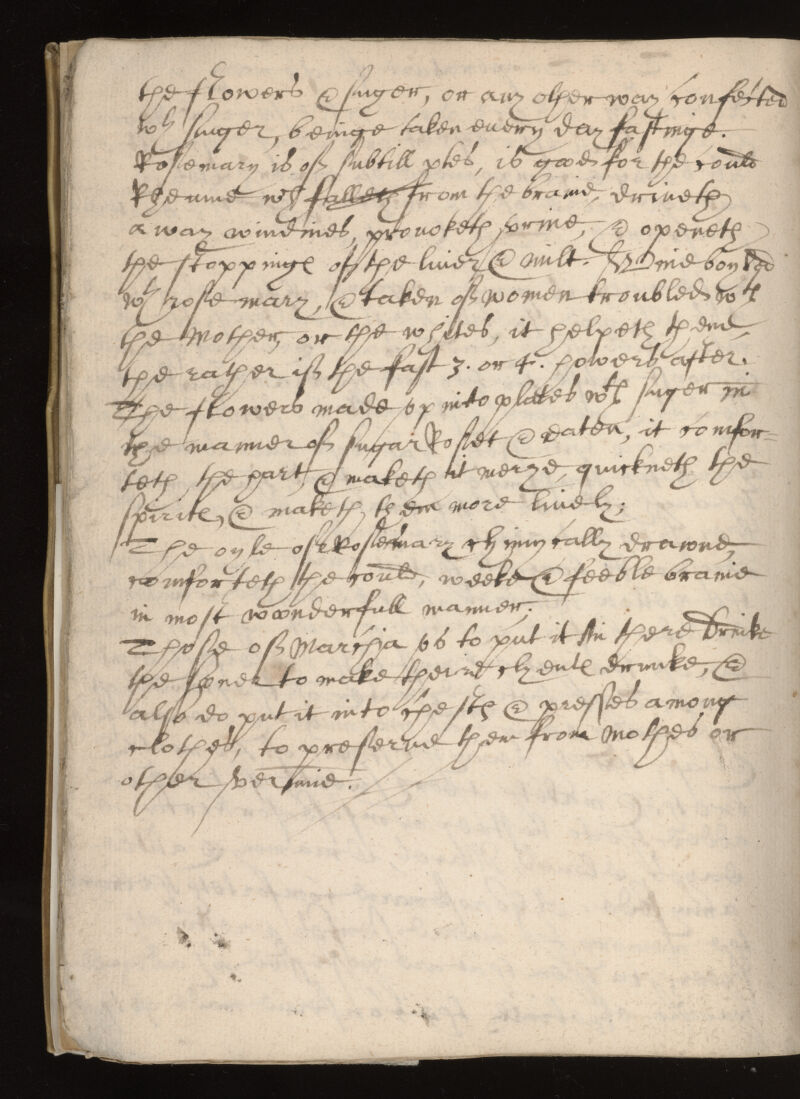 the flowers & suger, or any other way confected
wth suger, beinge taken euery day fastinge.
Rosemary is of subtill ptes, is good for the could
Rheume wch falleth from the braine, driueth
a way windines, prouoketh vrine, & openeth
the stoppinge of the liuer & milt. Wine boyled
wth rosemary, & taken of women troubled wth
the Mother, or the whites, it helpeth them,
the rather if the fast 3. or 4. howers after.
The flowers made vp into plates wth suger in
the manner of sugar Roset & eaten, it comfor=
teth the hart, & maketh it merye, quickneth the
spirits, & maketh them more liuely;
The oyle of Rosemary chimycally drawne,
comforteth the could, weeke & feeble braine
in most wonderfull manner;
Those of Marchia vs to put it in there drinke
the soner to make theire clyents drunke, &
also do put it into chests & presses among
clothes, to preserue them from Mothes or
other vermine.